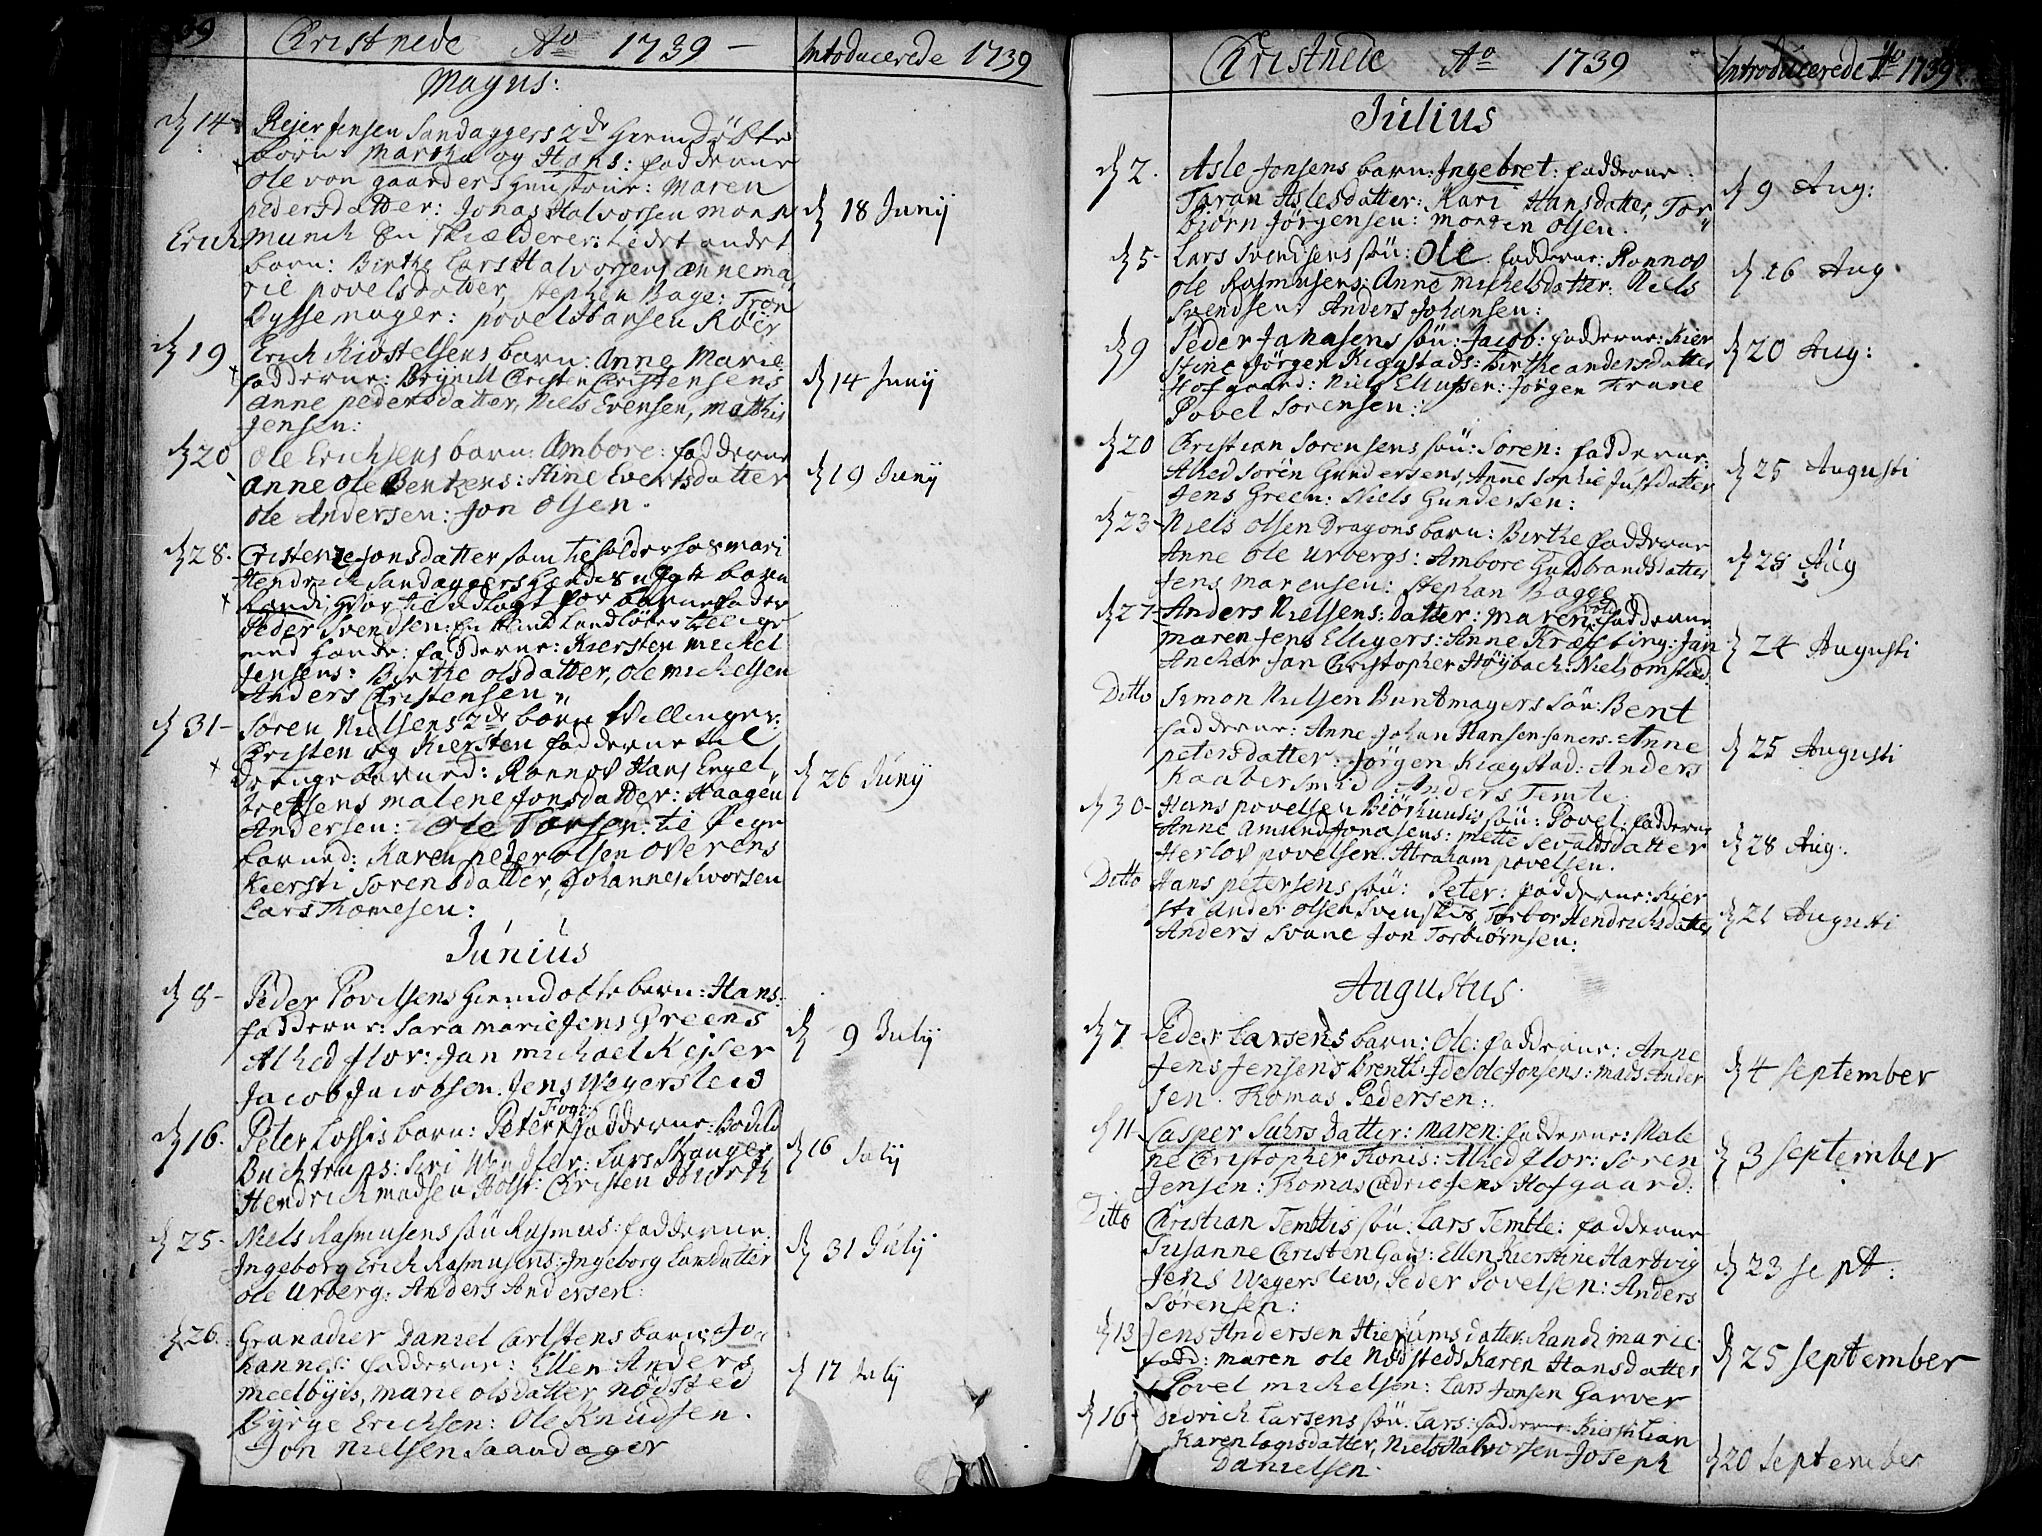 Christnede Ao 1739 - Introducerede 1739
Majus:
d 14 Reier Jensen Sandaggers 2de hiemdöbte
börn Martha og Hans: fadderne
Ole von gaarders hustrue: Maren
pedersdatter: Jonas Halvorsen
d 18 Junij
Erich Munch En skielderer: tedet andet
barn: Birthe Lars Halvorsens anne ma
rie povelsdatter, Stephen Bage: Tron
Dyssemager: povel Hansen Röier
d 19 Erich Kiöstelsens barn: Anne Marie
fadderne: Brynill Christen Christensens
anne pedersdatter, Niels Evensen, Mathis
Jensen:
d 14 Junij
d 20 Ole Erichsens barn: Ambore: fadderne
anne Ole Bentzens: Stine Evertsdatter
Ole Andersen: Jon Olsen.
d 19 Junij
d 28. Cristense Jonsdatter som tilholder hos mari
Hendrich Sandaggers barn
Randi, hvor til udlagt for barnefader
Peder Svendsen: En Landlöber
med hende: fadderne: Kiersten Mickel
Jensens: Birthe Olsdatter, Ole Mickelsen
Anders Christensen
d 31 - Sören Nielsens 2de börn tvillinger:
Christen og Kiersten fadderne til
Drengebarned: Ronnov Hans Engel
bretsens Malene Jonsdatter: Haagen
Andersen: Ole Torsen: til Pige
barned: Karen peder olsen overens
Kiersti Sorensdatter, Johannes Iworsen
Lars Thomesen:
d 26 Junij
Junius
d 8 - Peder Povelsens hiemdöbte barn: Hans:
fadderne: Sara marie Jens Greens
Alhed flor: Jan michael Keiser
Jacob Jacobsen. Jens Wegersleio
d 9 Julij
d 16. Peter Lossis barn: Peter Foged fadderne: Bodild
Buchtrups: Siri Wendfer: Lars Stanger
Hendrich madsen Holst: Christen Hiorth
d 16 Julij
d 25 - Niels Rasmusens sön Rasmus: fadderne
Ingeborg Erich Rasmusens: Ingeborg Larsdatter
Ole Urberg: Anders Andersen:
d 31 Julij
d 26. Granadier Daniel Carlstens barn: Jo
hannes: fadderne: Ellen Anders
meelbyis, marie olsdatter nödsted
Byrge Erichsen: Ole Knudsen.
Jon Nielsen Saandager
d 17 Julij
Christnede Ao 1739 Introducerede Ao 1739
Julius
d 2. Asle Jonsens barn: Ingebret: fadderne:
Taran Aslesdatter: Kari Hansdatter, Tor
biorn Jörgensen: morten olsen.
d 9 Aug:
d 5 - Lars Svendsens sön: Ole. fadderne: Ronnov
Ole Rasmusens: Anne Michelsdatter: Niels
Svendsen: Anders Johansen:
d 16 Aug
d 9 Peder Janasens sön: Jacob: fadderne: Kier
stine Jörgen Kiegstads: Birthe andersdatter
Hofgaard: Niels Elligsen: Jörgen Trane
Povel Sorensen:
d 20 Aug:
d 20 Christian Sorensens sön: Soren: fadderne:
Alhed Sorén Gundersens, Anne Sophie Justdatter
Jens Green: Niels Gundersen:
d 25 Augusti
d 23 - Niels Olsen Dragons barn: Birthe fadderne
Anne Ole Urbergs: Ambore Guldbrandsdatter
Jens Marensen: Stephan Bagge
d 25 Aug
d 27 - Anders Nielsens: Datter: Maren fadderne
Maren Jens Elligers: Anne Kræfting: Jan
Ancher Jan Christopher Höybach: Niels omsted
d 24 Augusti
Ditto Simon Nielsen Buntmagers Sön: Bent
fadderne: Anne Johan Hansen saners. Anne
petersdatter: Jörgen Kiægstad: Anders
Kaabersmid Anders Temte.
d 25 Augusti
d 30 - Hans povelsen Biörlunds sön: Povel: fadderne
Anne Amund Jonasens: Mette Sevaldsdatter
Herlov povelsen. Abraham povelsen.
d 28 Aug:
Ditto Hans petersens sön: Peter: fadderne: Kier
sti Ander Olsen Svenskis Torbor Hendrichsdatter
Anders Svane Jon Torbiörnsen:
d 21 Augusti
Augustus.
d 7 - Peder Larsens barn: Ole: fadderne: Anne
Jens Jensens Brenth: Ide Ole Jonsens: mads Ander
sen. Thomas Pedersen:
d 4 September
d 11 - Casper Suhrs datter: maren: fadderne: Male
ne Christopher Thonis: Alhed flor: Soren
Jensen: Thomas Jens Hofgaard:
d 3 September
Ditto Christian Temttis sön: Lars Temtte: fadderne
Susanne Christen Gads: Ellen Kierstine Hartvig
Jens Wegerslew, Peder Povelsen: Anders
Sörensen:
d 23 Sept:
d 13 Jens Andersen Hierums datter: Randi marie:
fadd: maren Ole Nödsteds Karen Hansdatter
Povel mickelsen: Lars Jonsen Garver
d 25 September
d 16 Didrich Larsens sön: Lars: fadderne: Kiersti Lian
Karen Lagisdatter, Niels Halvorsen Joseph
Danielsen.
d 20 September